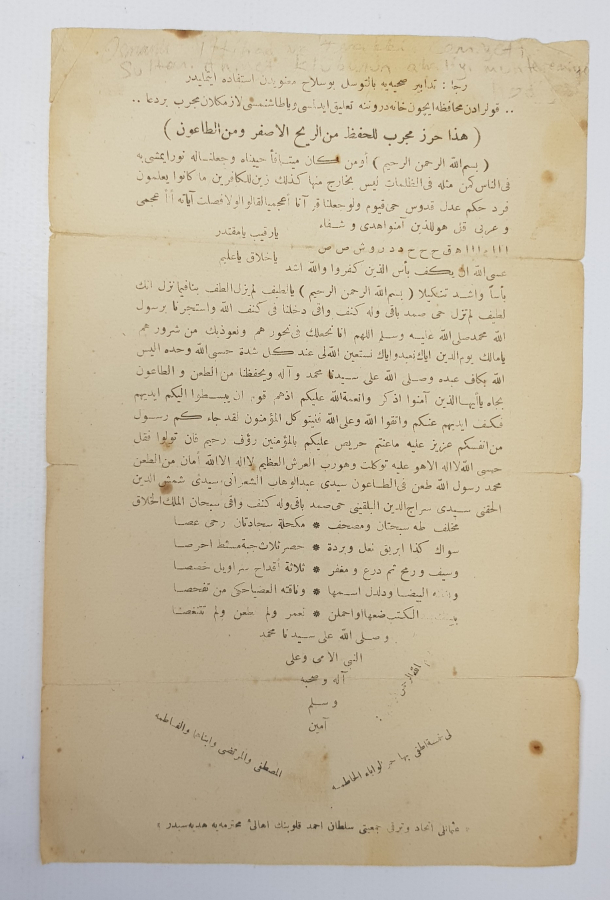 Osmanlı İttihad ve Terakki Cemiyeti
Sultan Ahmed Klubünün ahalii muhteremeye
رجا : تدابیر صحیه یه بالتوسل بوسلاح معنویدن استفاده ایتمایدر
قولرادن محافظه ایچون خانه دروننه تعلیق ایداسی وباطاشنمسی لازمکلان مجرب بردعا
( هذا حرز مجرب للحفظ من الريح الاصفر ومن الطاعون )
( بسم الله الرحمن الرحيم ) أومن كان ميتا فأحييناه وجعلنا له نورا يمشى به
فى الناس كمن مثله فى الظلمات ليس بخارج منها كذلك زين للكافرين ما كانوا يعملون
فرد حكم عدل قدوس حى قيوم ولو جعلناه قرآنا أعجميا لقالوا لولا فصلت آياته أأعجمى
و عربى قل هو للذين آمنوا هدى و شفاء
يارقيب يامقتدر
ياخلاق ياعليم
عسى الله ان يكف بأس الذين كفروا والله اشد
بأسا واشد تنكيلا ( بسم الله الرحمن الرحيم ) يالطيف لم يزل الطف بنا فيما نزل انك
لطيف لم تزل حى صمد باقى وله كنف واقى دخلنا فى كنف الله واستجرنا برسول
الله محمد صلى الله عليه وسلم اللهم انا نجعلك فى نحورهم ونعوذ بك من شرورهم
يامالك يوم الدين اياك نعبد واياك نستعين الله لى عند كل شدة حسبى الله وحده اليس
الله بكاف عبده وصلى الله على سيدنا محمد و آله ويحفظنا من الطعن و الطاعون
بجاه ياأيها الذين آمنوا اذكروا نعمة الله عليكم اذهم قوم ان يبسطوا اليكم ايديهم
فكف ايديهم عنكم واتقوا الله وعلى الله فليتوكل المؤمنون لقد جاءكم رسول
من انفسكم عزيز عليه ماعنتم حريص عليكم بالمؤمنين رؤف رحيم فان تولوا فقل
حسبى الله لااله الاهو عليه توكلت وهو رب العرش العظيم لااله الاالله أمان من الطعن
محمد رسول الله طعن فى الطاعون سيدى عبدالوهاب الشعرانى، سيدى شمس الدين
الحنفى سيدى سراج الدين البلقينى حى صمد باقى وله كنف واقى سبحان الملك الخلاق
مخلف طه سبحتان ومصحف * مكحلة سجادتان رحى عصا
سواك كذا ابريق نعل وبردة * حصر ثلاث جبة مشط احرصا
وسيف ورمح ثم درع ومغفر * ثلاثة أقداح سراويل خصصا
البيضا ودلدل اسمها * وناقته العضبا حكى من تفحصا
الكتب ضعها او احملن * تعمر ولم تطعن ولم تتنغصا
وصلى الله على سيدنا محمد
النبى الامى وعلى
آله وصحبه
وسلم
آمين
الله الرحمن
لى خمسة اطفى بها حر الوباء الحاطمه
المصطفى والمرتضى وابناهما والفاطمه
« عثمانلى اتحاد وترقى جمعيتى سلطان احمد قلوبنك اهالئ محترمه يه هديه سيدر »